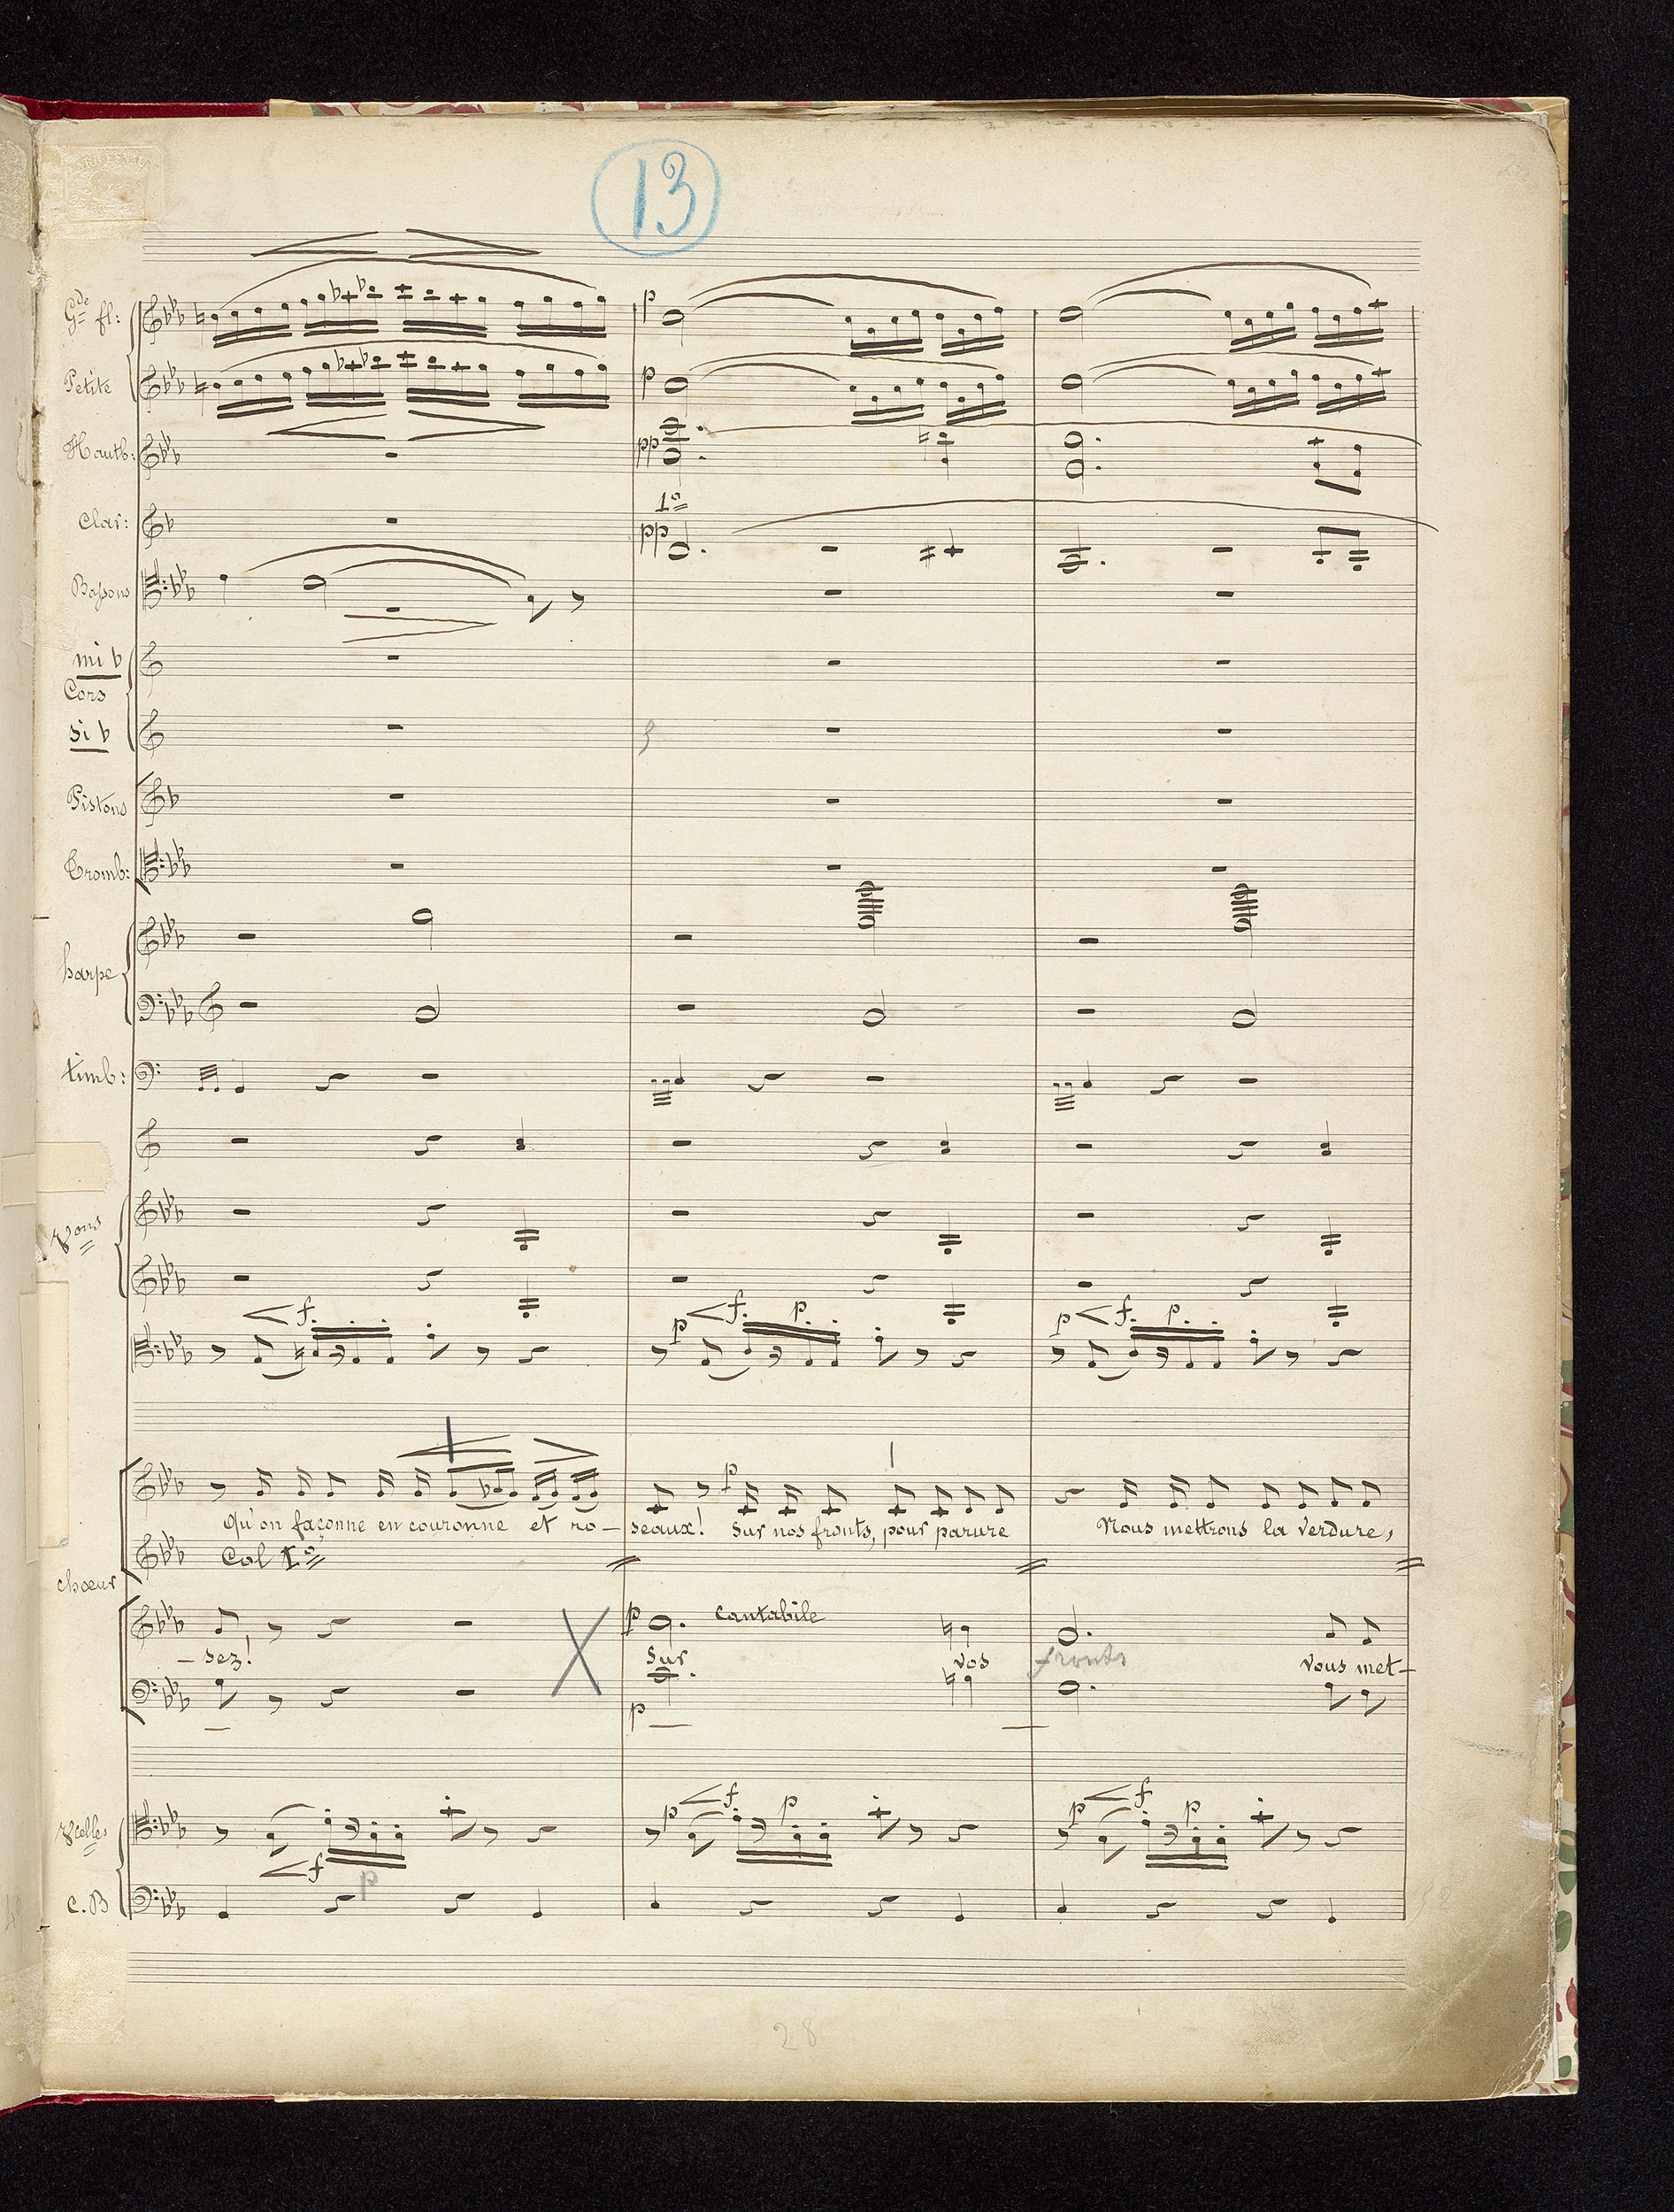 13
Gde fl:
p
Petite
p
Hautb:
pp
1º
Clar:
pp
Bassons
mi b
Cors
si b
Pistons
Tromb:
harpe
timb:
Vons
f p f p p f p
Qu'on façonne en couronne et ro- seaux! Sur nos fronts, pour parure Nous mettrons la verdure,
p
Col 1º
chœur
p cantabile
- sez! Sur vos fronts vous met-
p
Vcelles
p f p p f
f
p
C.B
28